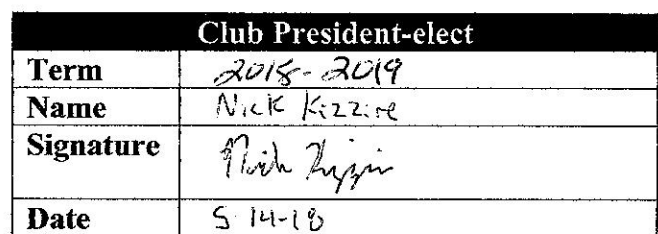 Club President-elect
Term 2018-2019
Name Nick Kizzire
Signature
Date 5-14-18